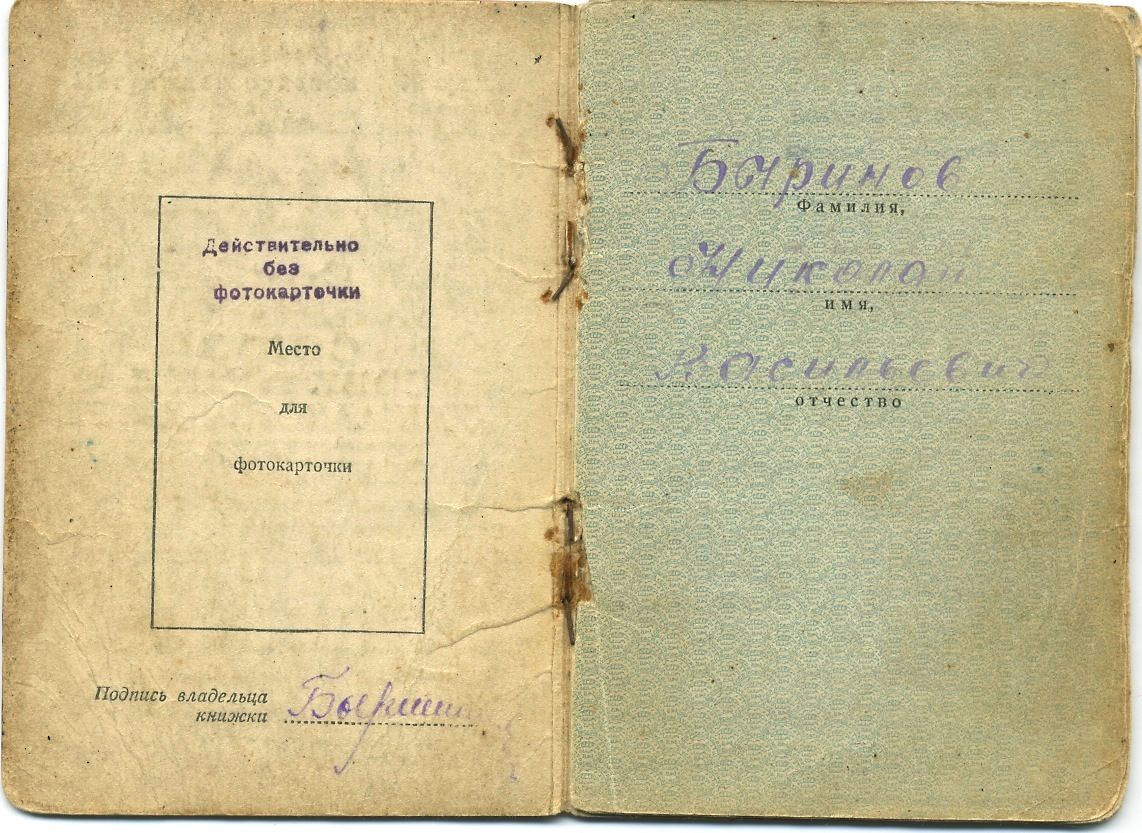 Действительно
без
фотокарточки
Место
для
фотокарточки
Подпись владельца
книжки
Быринов
Фамилия,
Николай
имя,
Васильевич
отчество